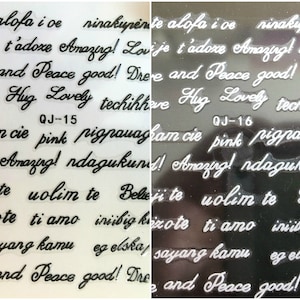 te alofa i oe
t'adoxe Amazing! Lov
and Peace good! Dre
Hug Lovely
QJ-15
am cie pink pignauag
Amazing! ndagukund
uolim te Bela
te ti amo iniibig k
sayang kamu eg elska
and Peace good! Dre
te alofa i oe ninakupen
je t'adoxe Amazing!
s and Peace good!
Hug Lovely techihh
QJ-16
am cie pink pignau
Amazing! ndaguk
i te uolim te Be
te ti amo iniibi
sayang kamu eg els
and Peace good!